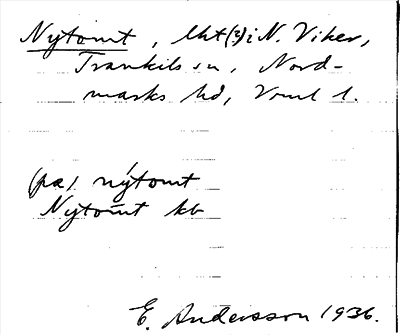 Nytomt, lht (3) i N. Viker,
Trankils sn, Nord-
marks hd, Vrml l.
(pa) nýtomt
Nytomt kb
E. Andersson 1936.